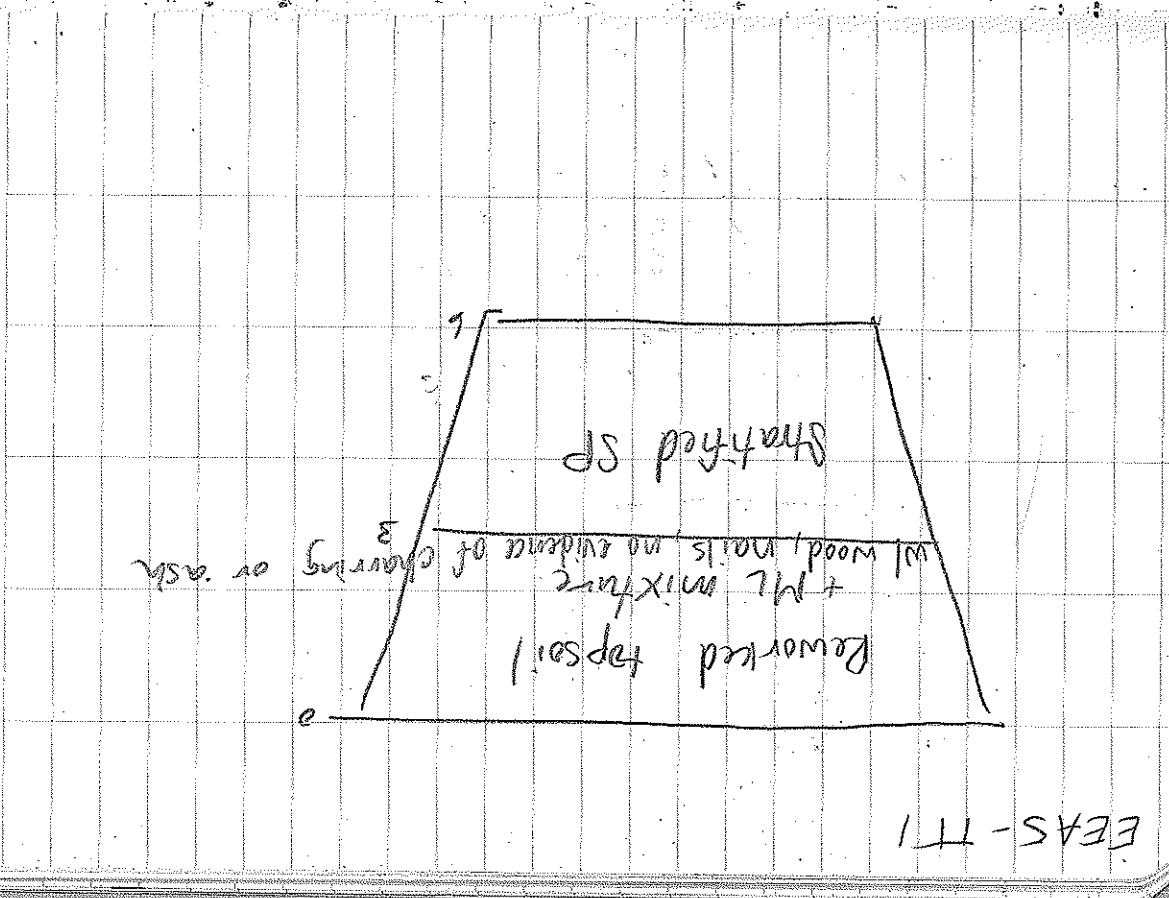 EEAS-TT1
0
Reworked topsoil
+ ML mixture
w/ wood, nails, no evidence of charring or ash
3
Stratified SP
6